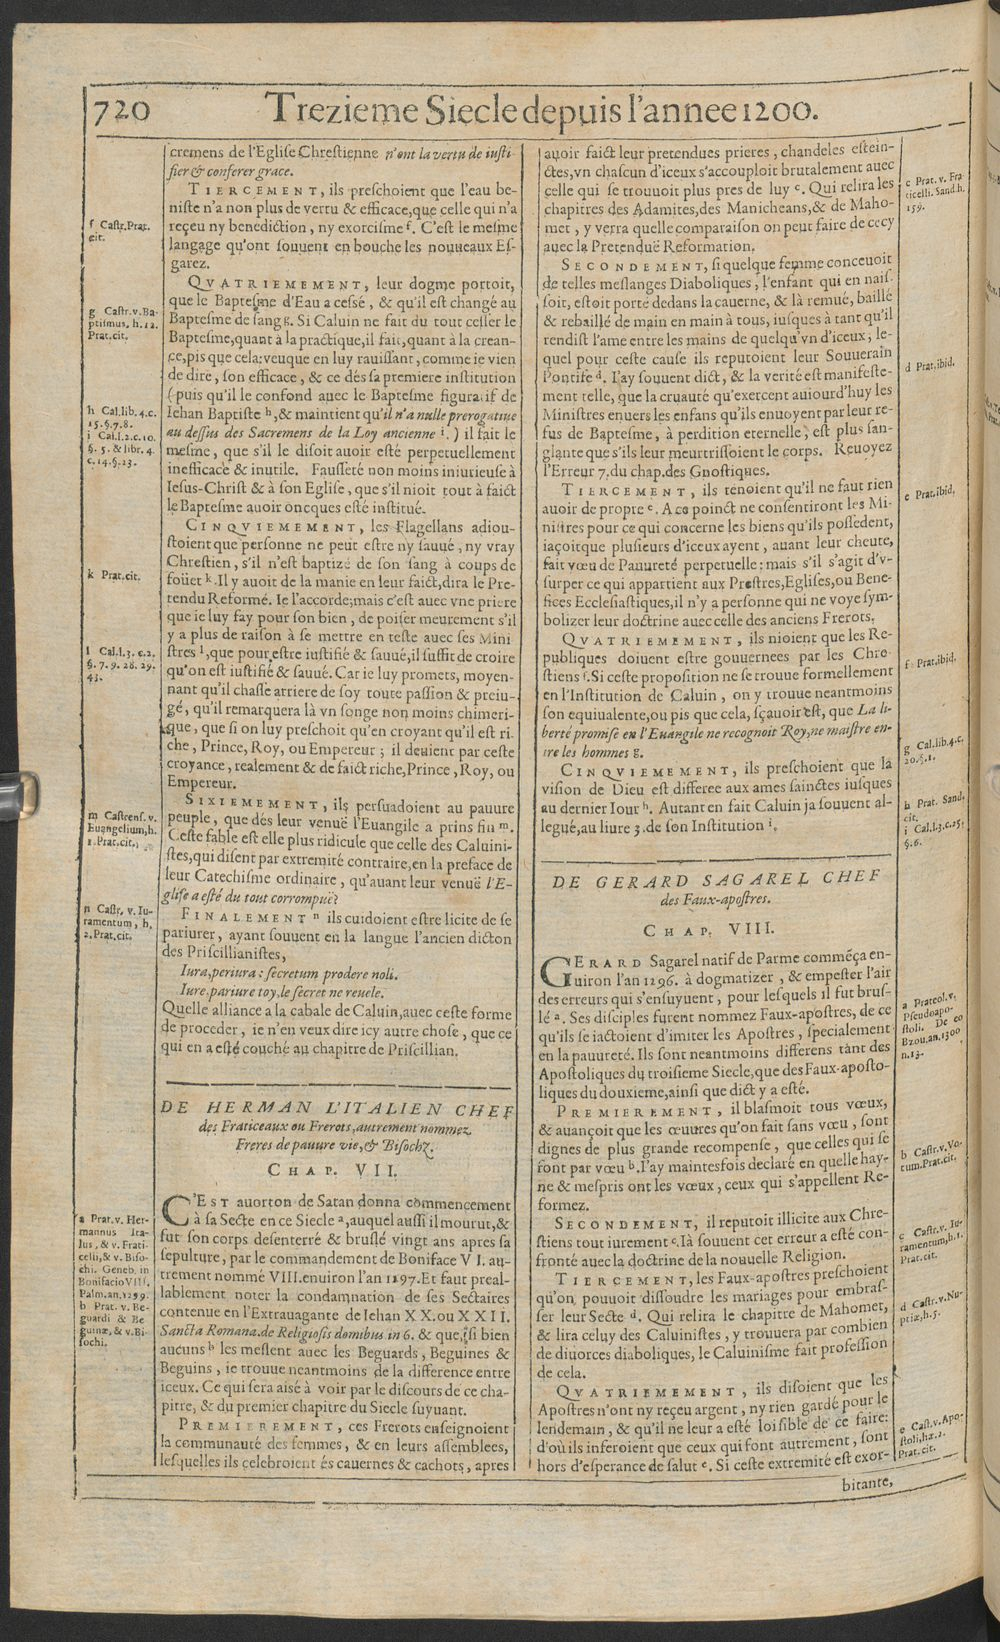 720
Trezieme Siecle depuis l'annee 1200.
cremens de l'Eglise Chrestienne n'ont la vertu de iusti-
fier & conferer grace.
TIERCEMENT, ils preschoient que l'eau be-
niste n'a non plus de vertu & efficace, que celle qui n'a
reçeu ny benediction, ny exorcisme f. C'est le mesme
langage qu'ont souuent en bouche les nouueaux Es-
garez.
QVATRIEMEMENT, leur dogme portoit,
que le Baptesme d'Eau a cessé, & qu'il est changé au
Baptesme de sang g. Si Caluin ne fait du tout cesser le
Baptesme, quant à la practique, il fait, quant à la crean-
ce, pis que cela: veuque en luy rauissant, comme ie vien
de dire, son efficace, & ce dés sa premiere institution
(puis qu'il le confond auec le Baptesme figuratif de
Iehan Baptiste h, & maintient qu'il n'a nulle prerogatiue
au dessus des Sacremens de la Loy ancienne i.) il fait le
mesme, que s'il le disoit auoir esté perpetuellement
inefficace & inutile. Fausseté non moins iniurieuse à
Iesus-Christ & à son Eglise, que s'il nioit tout à faict
le Baptesme auoir oncques esté institué.
CINQVIEMEMENT, les Flagellans adiou-
stoient que personne ne peut estre ny sauué, ny vray
Chrestien, s'il n'est baptizé de son sang à coups de
foüet k. Il y auoit de la manie en leur faict, dira le Pre-
tendu Reformé. Ie l'accorde; mais c'est auec vne priere
que ie luy fay pour son bien, de poiser meurement s'il
y a plus de raison à se mettre en teste auec ses Mini
stres l, que pour estre iustifié & sauué, il suffit de croire
qu'on est iustifié & sauué. Car ie luy promets, moyen-
nant qu'il chasse arriere de soy toute passion & preiu-
gé, qu'il remarquera là vn songe non moins chimeri-
que, que si on luy preschoit qu'en croyant qu'il est ri-
che, Prince, Roy, ou Empereur; il deuient par ceste
croyance, realement & de faict riche, Prince, Roy, ou
Empereur.
SIXIEMEMENT, ils persuadoient au pauure
peuple, que dés leur venuë l'Euangile a prins fin m.
Ceste fable est elle plus ridicule que celle des Caluini-
stes, qui disent par extremité contraire, en la preface de
leur Catechisme ordinaire, qu'auant leur venuë l'E-
glise a esté du tout corrompuë?
FINALEMENT n ils cuidoient estre licite de se
pariurer, ayant souuent en la langue l'ancien dicton
des Priscillianistes,
Iura, periura: secretum prodere noli.
Iure, pariure toy, le secret ne reuele.
Quelle alliance a la cabale de Caluin, auec ceste forme
de proceder, ie n'en veux dire icy autre chose, que ce
qui en a esté couché au chapitre de Priscillian.
DE HERMAN L'ITALIEN CHEF
des Fraticeaux ou Frerots, autrement nommez
Freres de pauure vie, & Bisochz.
CHAP. VII.
C'EST auorton de Satan donna commencement
à sa Secte en ce Siecle a, auquel aussi il mourut, &
fut son corps desenterré & bruslé vingt ans apres sa
sepulture, par le commandement de Boniface VI. au-
trement nommé VIII. enuiron l'an 1197. Et faut preal-
lablement noter la condamnation de ses Sectaires
contenue en l'Extrauagante de Iehan XX. ou XXII.
Sancta Romana. de Religiosis domibus in 6. & que, si bien
aucuns b les meslent auec les Beguards, Beguines &
Beguins, ie trouue neantmoins de la difference entre
iceux. Ce qui sera aisé à voir par le discours de ce cha-
pitre, & du premier chapitre du Siecle suyuant.
PREMIEREMENT, ces Frerots enseignoient
la communauté des femmes, & en leurs assemblees,
lesquelles ils celebroient és cauernes & cachots, apres
f Castr. Prat.
cit.
g Castr. v. Ba-
ptismus, h. 12.
Prat. cit.
h Cal. lib. 4. c.
15. §. 7. 8.
i Cal. l. 2. c. 10.
§. 5. & libr. 4.
c. 14. §. 23.
k Prat. cit.
l Cal. l. 3. c. 2.
§. 7. 9. 28. 29.
43.
m Castrens. v.
Euangelium, h.
1. Prat. cit.
n Castr. v. Iu-
ramentum, h.
2. Prat. cit.
a Prat. v. Her-
mannus Ita-
lus, & v. Frati-
celli, & v. Biso-
chi. Geneb. in
Bonifacio VIII.
Palm. an. 1299.
b Prat. v. Be-
guardi & Be
guinæ, & v. Bi-
sochi.
auoir faict leur pretendues prieres, chandeles estein-
ctes, vn chascun d'iceux s'accouploit brutalement auec
celle qui se trouuoit plus pres de luy c. Qui relira les
chapitres des Adamites, des Manicheans, & de Maho-
met, y verra quelle comparaison on peut faire de cecy
auec la Pretenduë Reformation.
SECONDEMENT, si quelque femme conceuoit
de telles meslanges Diaboliques, l'enfant qui en nais-
soit, estoit porté dedans la cauerne, & là remué, baillé
& rebaillé de main en main à tous, iusques à tant qu'il
rendist l'ame entre les mains de quelqu'vn d'iceux; le-
quel pour ceste cause ils reputoient leur Souuerain
Pontife d. I'ay souuent dict, & la verité est manifeste-
ment telle, que la cruauté qu'exercent auiourd'huy les
Ministres enuers les enfans qu'ils enuoyent par leur re-
fus de Baptesme, à perdition eternelle, est plus san-
glante que s'ils leur meurtrissoient le corps. Reuoyez
l'Erreur 7. du chap. des Gnostiques.
TIERCEMENT, ils tenoient qu'il ne faut rien
auoir de propre e. A ce poinct ne consentiront les Mi-
nistres pour ce qui concerne les biens qu'ils possedent,
iaçoitque plusieurs d'iceux ayent, auant leur cheute,
fait vœu de Pauureté perpetuelle: mais s'il s'agit d'v-
surper ce qui appartient aux Prestres, Eglises, ou Bene-
fices Ecclesiastiques, il n'y a personne qui ne voye sym-
bolizer leur doctrine auec celle des anciens Frerots.
QVATRIEMEMENT, ils nioient que les Re-
publiques doiuent estre gouuernees par les Chre-
stiens f. Si ceste proposition ne se trouue formellement
en l'Institution de Caluin, on y trouue neantmoins
son equiualente, ou pis que cela, sçauoir est, que La li-
berté promise en l'Euangile ne recognoit Roy, ne maistre en-
tre les hommes g.
CINQVIEMEMENT, ils preschoient que la
vision de Dieu est differee aux ames sainctes iusques
au dernier Iour h. Autant en fait Caluin ja souuent al-
legué, au liure 3. de son Institution i.
DE GERARD SAGAREL CHEF
des Faux-apostres.
CHAP. VIII.
GERARD Sagarel natif de Parme commẽça en-
uiron l'an 1296. à dogmatizer, & empester l'air
des erreurs qui s'ensuyuent, pour lesquels il fut brus-
lé a. Ses disciples furent nommez Faux-apostres, de ce
qu'ils se iactoient d'imiter les Apostres, specialement
en la pauureté. Ils sont neantmoins differens tant des
Apostoliques du troisieme Siecle, que des Faux-aposto-
liques du douxieme, ainsi que dict y a esté.
PREMIEREMENT, il blasmoit tous vœux,
& auançoit que les œuures qu'on fait sans vœu, sont
dignes de plus grande recompense, que celles qui se
font par vœu b. I'ay maintesfois declaré en quelle hay-
ne & mespris ont les vœux, ceux qui s'appellent Re-
formez.
SECONDEMENT, il reputoit illicite aux Chre-
stiens tout iurement c. Ià souuent cet erreur a esté con-
fronté auec la doctrine de la nouuelle Religion.
TIERCEMENT, les Faux-apostres preschoient
qu'on pouuoit dissoudre les mariages pour embras-
ser leur Secte d. Qui relira le chapitre de Mahomet,
& lira celuy des Caluinistes, y trouuera par combien
de diuorces diaboliques, le Caluinisme fait profession
de cela.
QVATRIEMEMENT, ils disoient que les
Apostres n'ont ny reçeu argent, ny rien gardé pour le
lendemain, & qu'il ne leur a esté loisible de ce faire:
d'où ils inferoient que ceux qui font autrement, sont
hors d'esperance de salut e. Si ceste extremité est exor-
bitante,
c Prat. v. Fra-
ticelli. Sand. h.
159.
d Prat. ibid.
e Prat. ibid.
f Prat. ibid.
g Cal. lib. 4. c.
20. §. 1.
h Prat. Sand.
cit.
i Cal. l. 3. c. 25.
§. 6.
a Prateol. v.
Pseudoapo-
stoli. De eo
Bzou. an. 1300
n. 13.
b Castr. v. Vo-
tum. Prat. cit.
c Castr. v. Iu-
ramentum, h. 1.
Prat. cit.
d Castr. v. Nu-
ptiæ, h. 5.
e Cast. v. Apo-
stoli, hæ. 2.
Prat. cit.